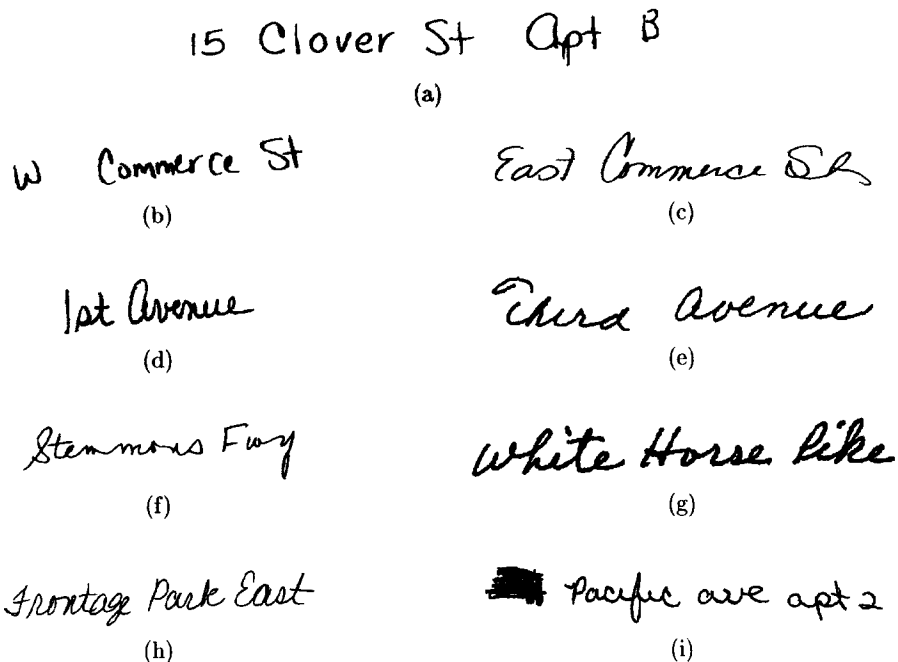 15 Clover St Apt B
(a)
W Commerce St
(b)
East Commerce St
(c)
1st Avenue
(d)
Third Avenue
(e)
Stemmons Fwy
(f)
White Horse Pike
(g)
Frontage Park East
(h)
Pacific ave apt 2
(i)